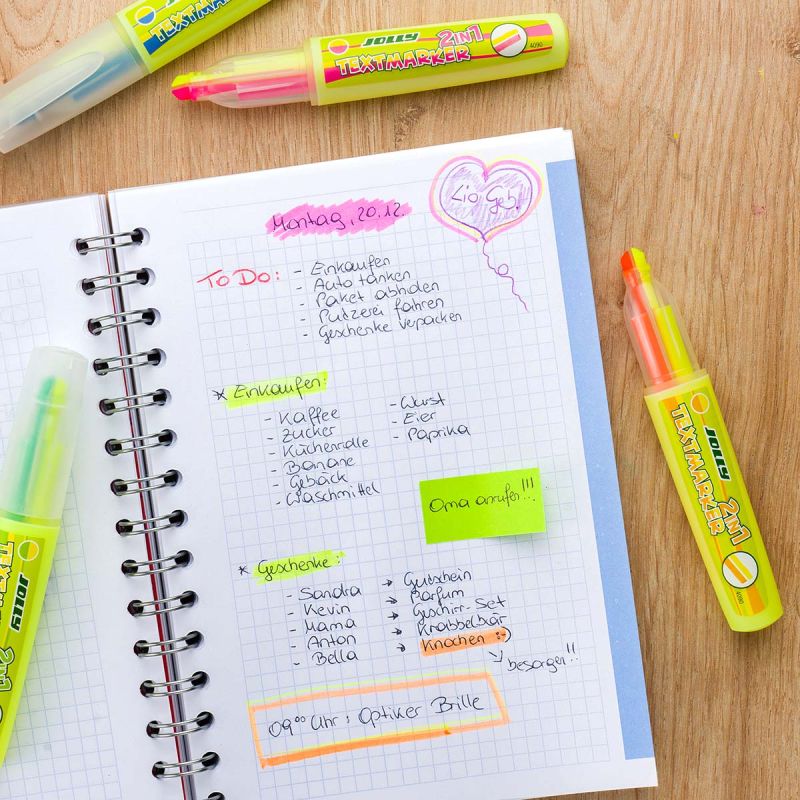 JOLLY
TEXTMARKER
JOLLY 2IN1
TEXTMARKER
4090
Lio Geb!
Montag, 20.12.
To Do:
- Einkaufen
- Auto tanken
- Paket abholen
- Putzerei fahren
- Geschenke verpacken
* Einkaufen:
- Kaffee
- Zucker
- Küchenrolle
- Banane
- Gebäck
- Waschmittel
- Wurst
- Eier
- Paprika
Oma anrufen!!!
* Geschenke:
- Sandra → Gutschein
- Kevin → Parfum
- Mama → Geschirr-Set
- Anton → Knabbelbär
- Bella → Knochen :-)
↘ besorgen!!
09⁰⁰ Uhr: Optiker Brille
JOLLY 2IN1
TEXTMARKER
JOLLY 2IN1
TEXTM